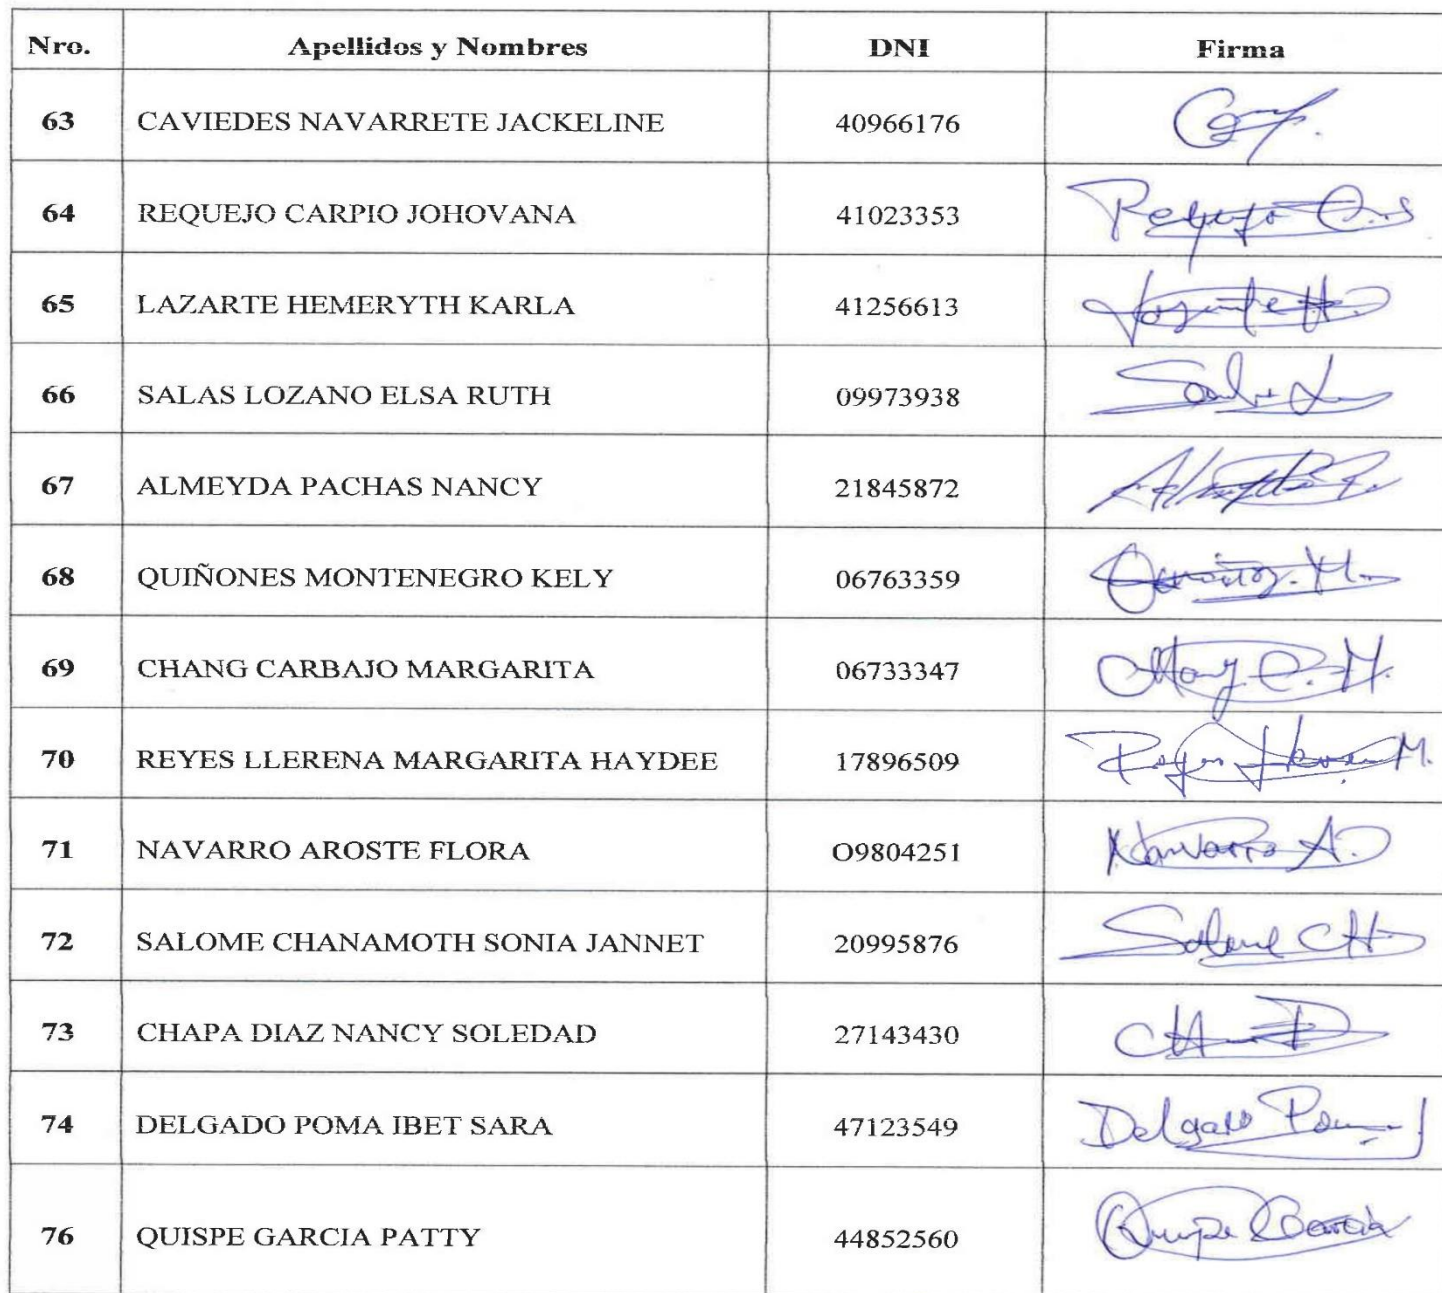 Nro. Apellidos y Nombres DNI Firma
63 CAVIEDES NAVARRETE JACKELINE 40966176
64 REQUEJO CARPIO JOHOVANA 41023353 Requejo C.
65 LAZARTE HEMERYTH KARLA 41256613 Lazarte H.
66 SALAS LOZANO ELSA RUTH 09973938 Salas L
67 ALMEYDA PACHAS NANCY 21845872 Almeyda P.
68 QUIÑONES MONTENEGRO KELY 06763359 M.
69 CHANG CARBAJO MARGARITA 06733347 Chang C. M.
70 REYES LLERENA MARGARITA HAYDEE 17896509 Reyes Llerena M.
71 NAVARRO AROSTE FLORA O9804251 Navarro A.
72 SALOME CHANAMOTH SONIA JANNET 20995876 Salome CH
73 CHAPA DIAZ NANCY SOLEDAD 27143430
74 DELGADO POMA IBET SARA 47123549 Delgado Poma
76 QUISPE GARCIA PATTY 44852560 Quispe Garcia